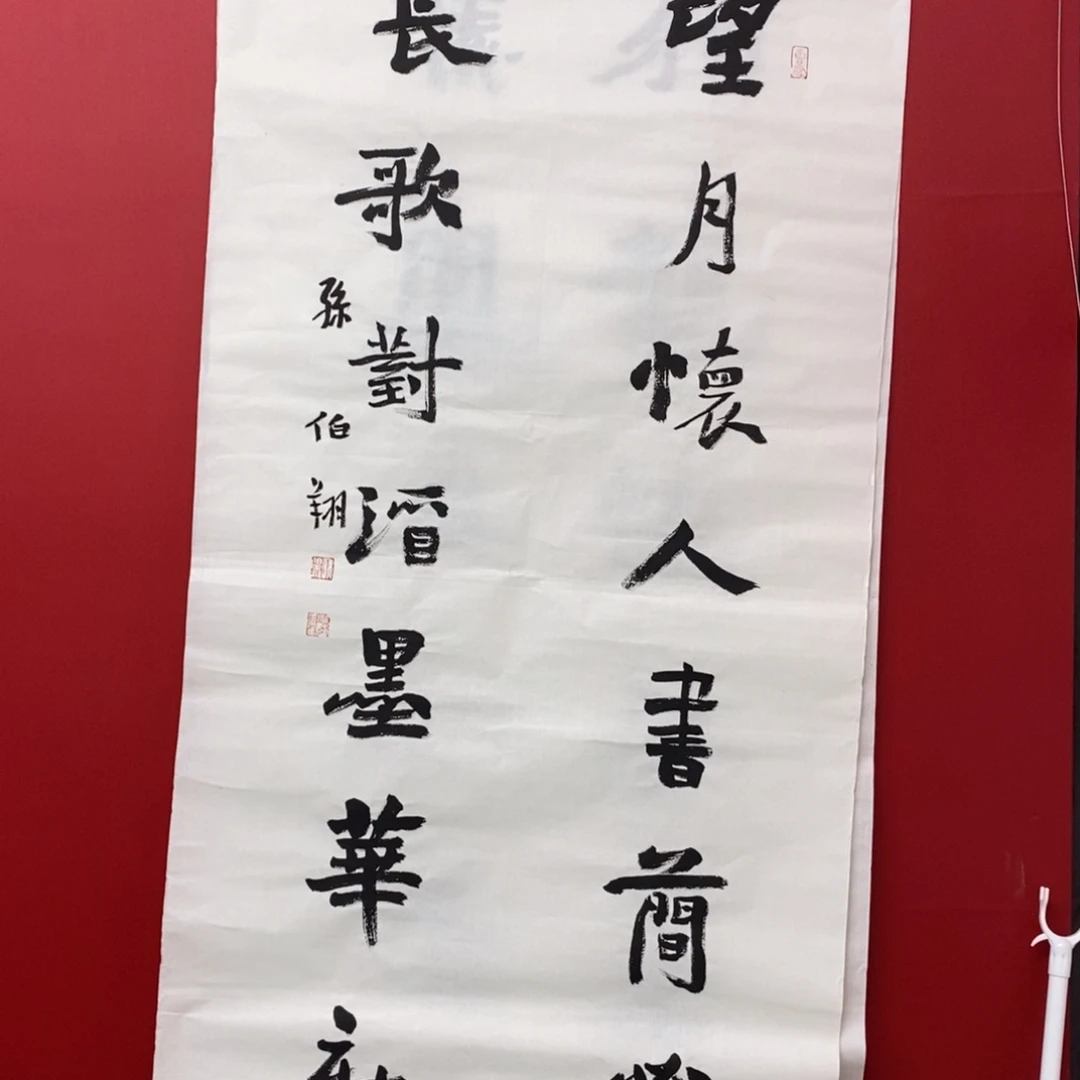 望月懷人書簡
長歌對酒墨華
孫伯翔